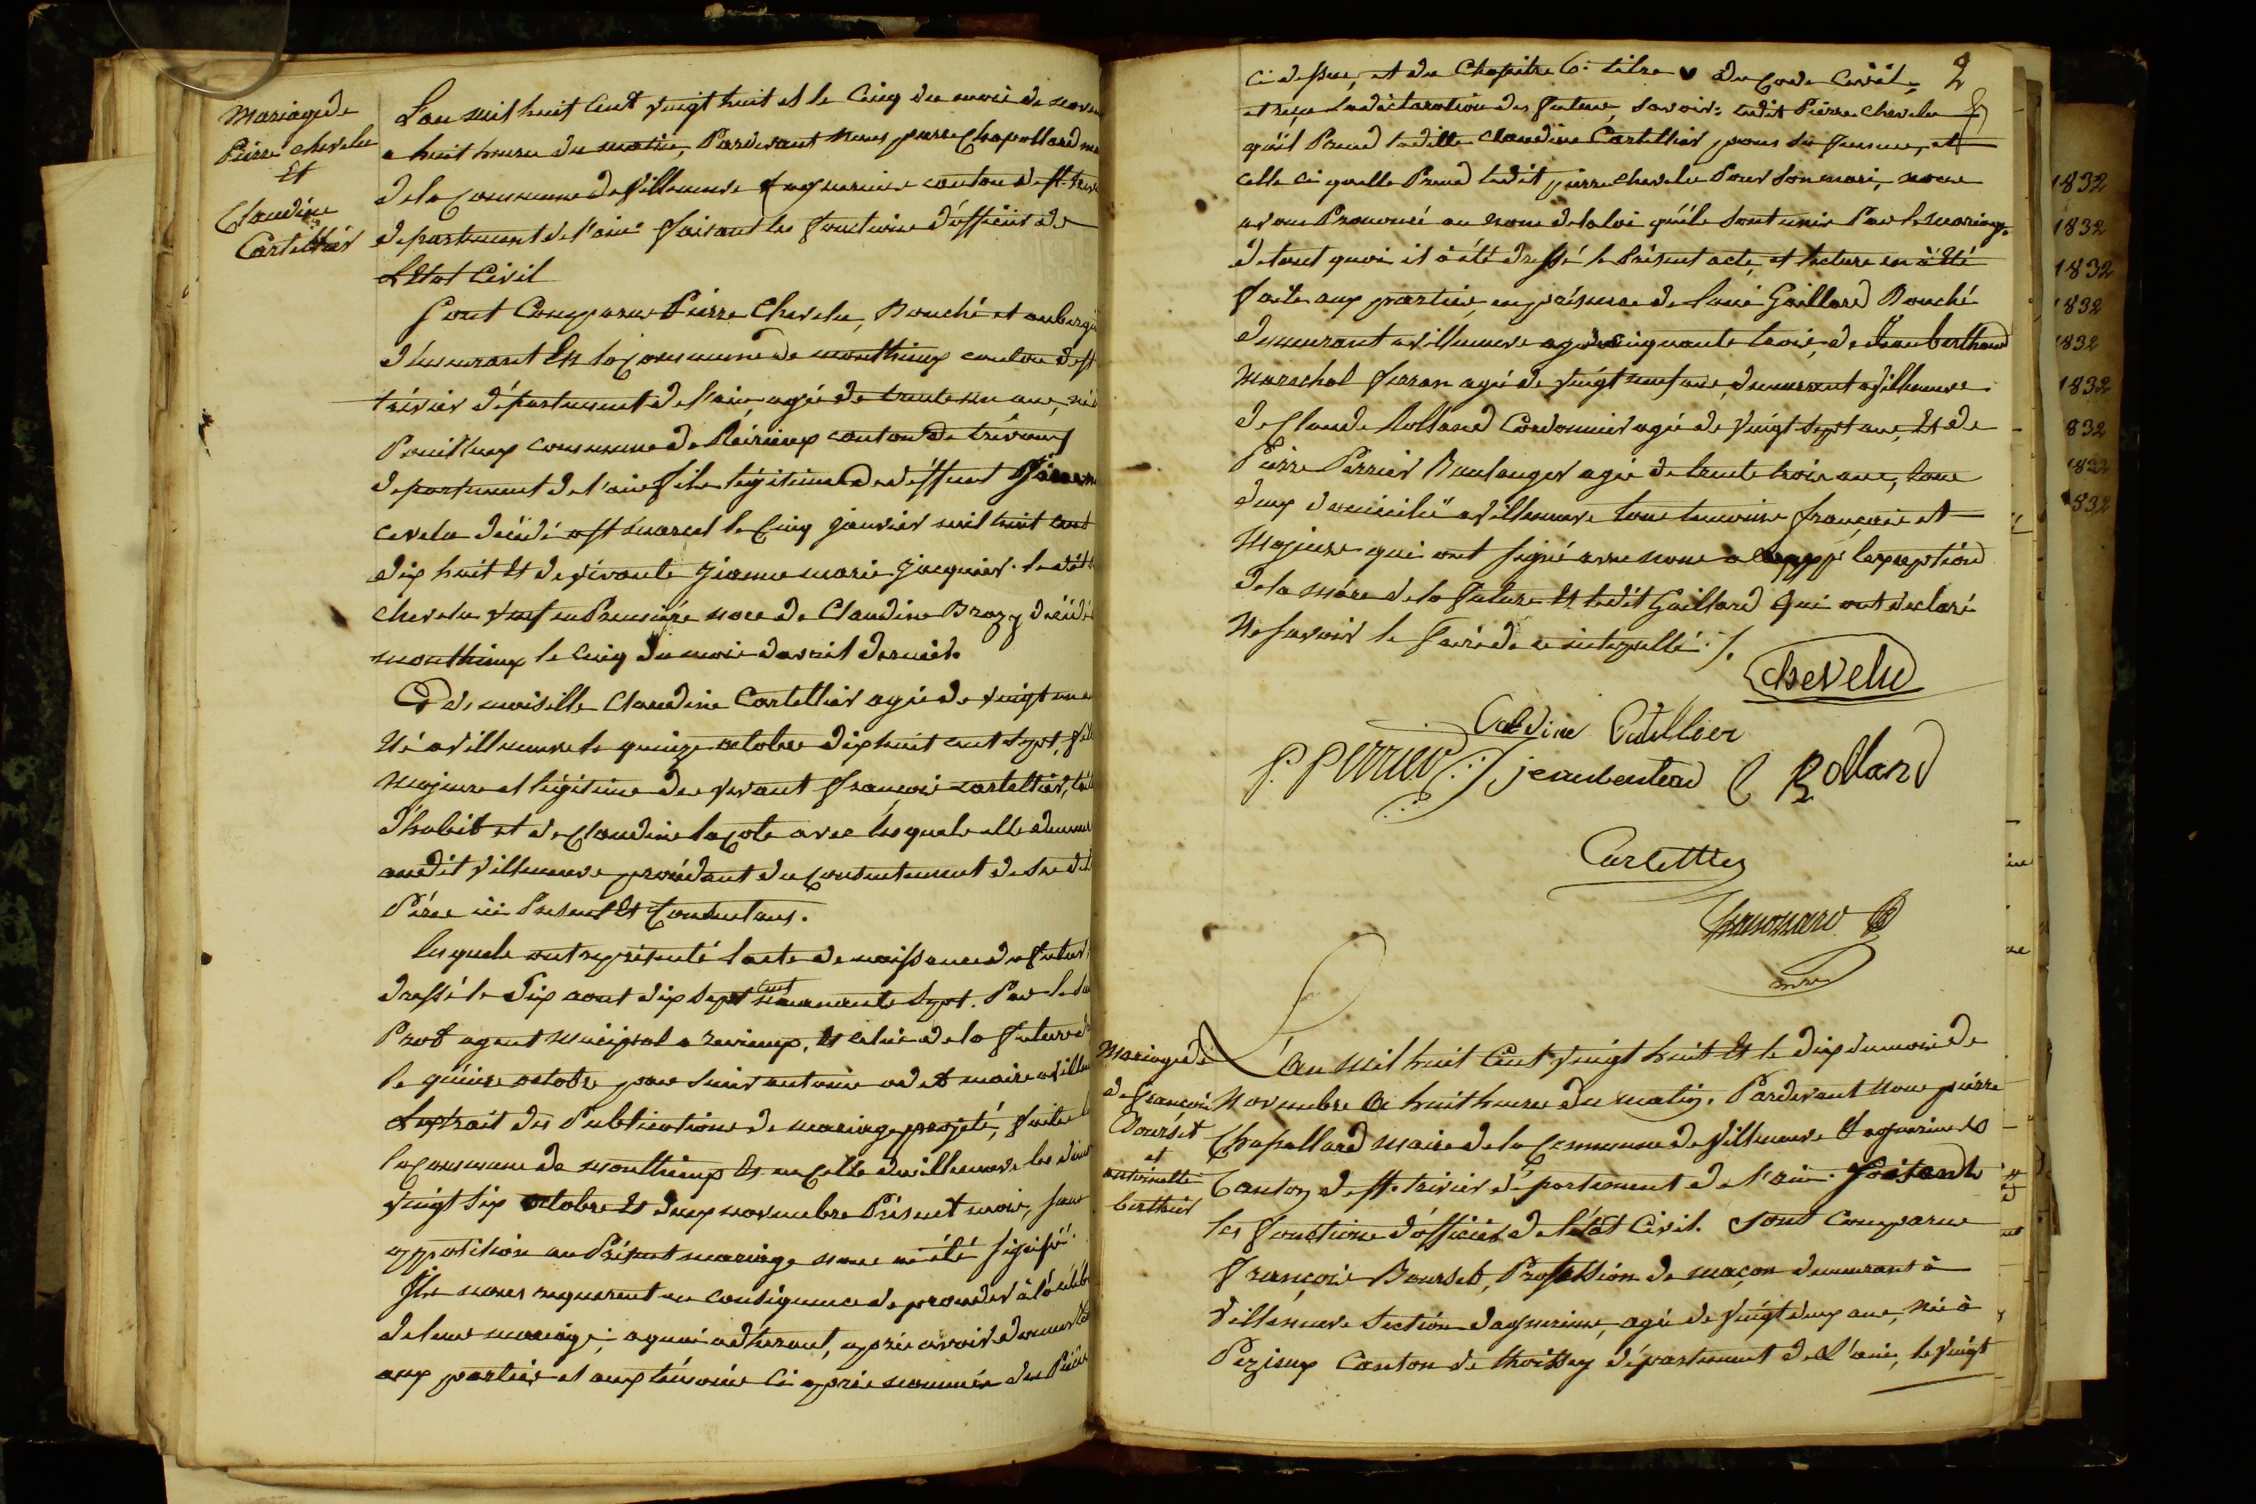 Mariage de
Pierre chevelu
Et
Claudine
Cartellier
L'an mil huit Cent vingt huit et le Cinq du mois de novem
a huit heures du matin, Pardevant nous pierre Chapollard ma
de la Commune de Villeneuve & agnereins canton de st. trivi
departement de l'ain faisant les fonctions d'officier de
L'Etat Civil
Sont Comparus Pierre Chevelu, Bouché et aubergi
démeurant En la Commune de monthieux canton de st
trivier département de l'ain, agé de trente un ans, né à
Pouilleux commune de Reirieux canton de trévoux
departement de l'ain fils légitime de déffunt
cevelu décédé a st marcel le Cinq janvier mil huit cent
dix huit Et de vivante jeanne marie jacquier. le dit
chevelu veuf en Premiére noce de Claudine Brazy décédé
monthieux le cinq du mois davril dernier.
Et demoiselle Claudine Cartellier agée de vingt un a
Né a villeneuve le quinze octobre dix huit cent sept, fill
majeure et légitime des vivant françois cartellier, tail
d'habit et de Claudine lacote avec lesquels elle demeur
audit villeneuve procédant du consentement de ses dit
Pére ici Present Et Consentans.
lesquels ont représenté l'acte de naissance du futur,
dressé le Dix aout dix sept cent nonante sept. Par le
Prot agent municipal a reirieux, Et celui de la future d
le quinze octobre par sieur antoine odet maire a ville
L'extrait des Publications de mariage projeté, faites
la Commune de monthieux Et en Celle de villeneuve les dim
vingt six octobre Et deux novembre Présent mois, sans
opposition au Présent mariage nous ai été signifié.
Ils nous requerent en conséquence de proceder à la célébr
de leur mariage; a quoi adherant, aprés avoir donner
aux parties et aux témoins Ci aprés nommés des Piéces
2
Ci dessus, et du Chapitre 6. titre v du Code Civil,
et reçu la déclaration des futurs, savoir: ledit Pierre chevelu
qu'il Prend ladite Claudine Cartellier pour sa femme, et
celle ci quelle Prend ledit pierre chevelu Pour son mari, nous
avons Prononcé au nom de la loi qu'ils sont unis Par le mariage.
de tout quoi il à été dressé le Présent acte, et lecture en à été
faite aux parties, en présence de Louis Gaillard Bouché
demeurant a villeneuve agé de cinquante trois, de Jean berthaud
Marechal ferran agé de vingt neuf ans, demeurant a villeneuve
de Claude Rolland Cordonnier agé de vingt sept ans, Et de
Pierre Perrier Boulanger agé de trente trois ans, tous
deux domicilié a villeneuve tous temoins français et
Majeurs qui ont signé avec nous a lexseption
de la mére de la future Et ledit Gaillard Qui ont declaré
Ne savoir le faire de ce interpellé ./.
chevelu
P. perrier
jeanberteau
C Rolland
Cartellier
Mariage de
de françois
Bourset
et
antoinette
berthier
L'an Mil huit Cent vingt huit Et le dix du mois de
Novembre à huit heures du matin, Pardevant Nous pierre
Chapollard maire de la Commune de Villeneuve & agnereins
Canton de st. trivier département de l'ain. faisant
les fonctions d'officier de l'état Civil. Sont Comparus
François Bourset, Profession de maçon demeurans à
villeneuve section dagnereins, agé de vingt deux ans, né à
Pezieux Canton de thoissey département de L'ain, le vingt
1832
1832
1832
1832
1832
1832
832
1832
1832